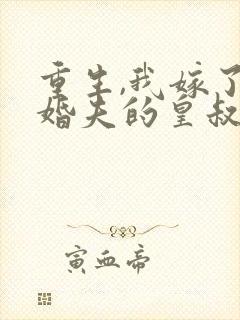 重生,我嫁了
婚夫的皇叔
寅血帝